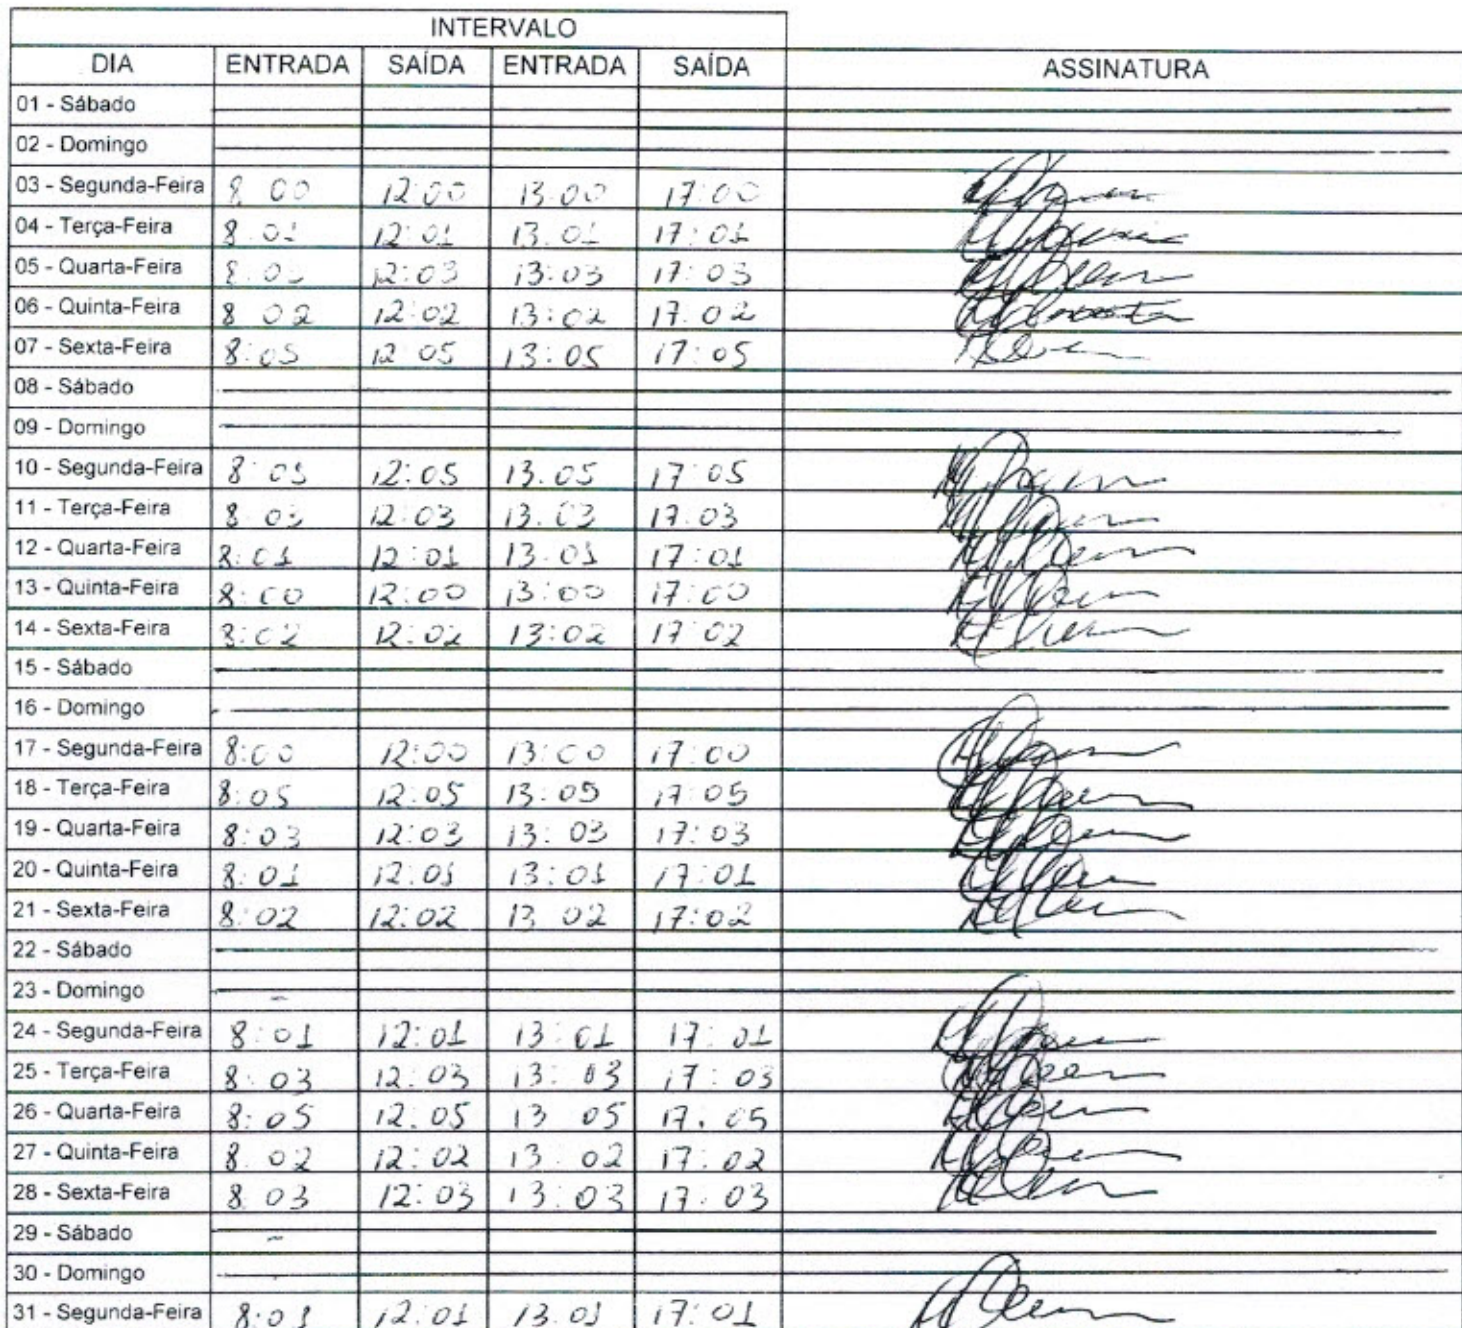 INTERVALO
DIA ENTRADA SAÍDA ENTRADA SAÍDA ASSINATURA
01 - Sábado
02 - Domingo
03 - Segunda-Feira 8 00 12:00 13:00 17:00
04 - Terça-Feira 8:01 12:01 13:01 17:01
05 - Quarta-Feira 8:03 12:03 13:03 17:03
06 - Quinta-Feira 8 02 12:02 13:02 17:02
07 - Sexta-Feira 8:05 12:05 13:05 17:05
08 - Sábado
09 - Domingo
10 - Segunda-Feira 8:05 12:05 13:05 17:05
11 - Terça-Feira 8:03 12:03 13:03 17:03
12 - Quarta-Feira 8:01 12:01 13:01 17:01
13 - Quinta-Feira 8:00 12:00 13:00 17:00
14 - Sexta-Feira 8:02 12:02 13:02 17:02
15 - Sábado
16 - Domingo
17 - Segunda-Feira 8:00 12:00 13:00 17:00
18 - Terça-Feira 8:05 12:05 13:05 17:05
19 - Quarta-Feira 8:03 12:03 13:03 17:03
20 - Quinta-Feira 8:01 12:01 13:01 17:01
21 - Sexta-Feira 8:02 12:02 13 02 17:02
22 - Sábado
23 - Domingo
24 - Segunda-Feira 8:01 12:01 13:01 17:01
25 - Terça-Feira 8:03 12:03 13:03 17:03
26 - Quarta-Feira 8:05 12:05 13 05 17:05
27 - Quinta-Feira 8:02 12:02 13:02 17:02
28 - Sexta-Feira 8 03 12:03 13:03 17:03
29 - Sábado
30 - Domingo
31 - Segunda-Feira 8:01 12:01 13:01 17:01